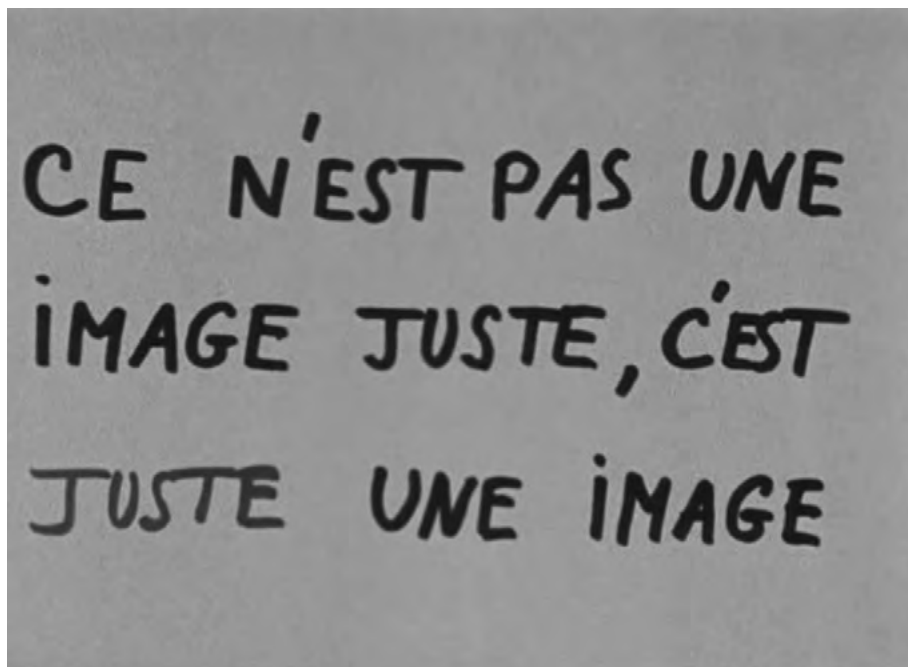 CE N'EST PAS UNE
iMAGE JUSTE, C'EST
JUSTE UNE iMAGE